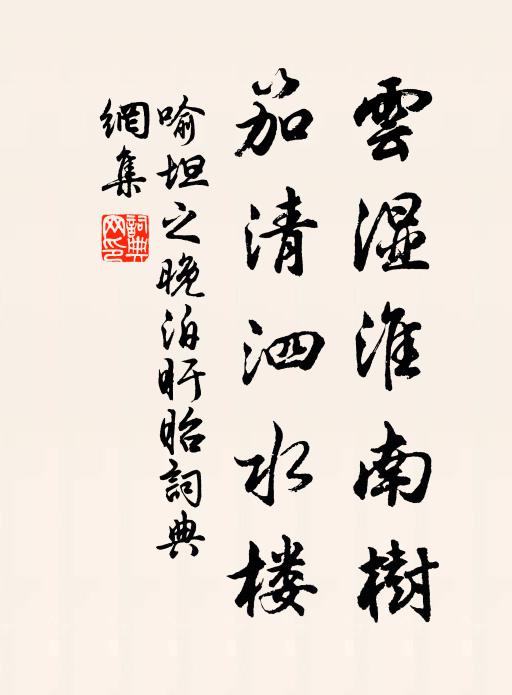 雲湿淮南樹
笳清泗水楼
喻坦之晚泊盱眙詞典
網集
詞典
网印